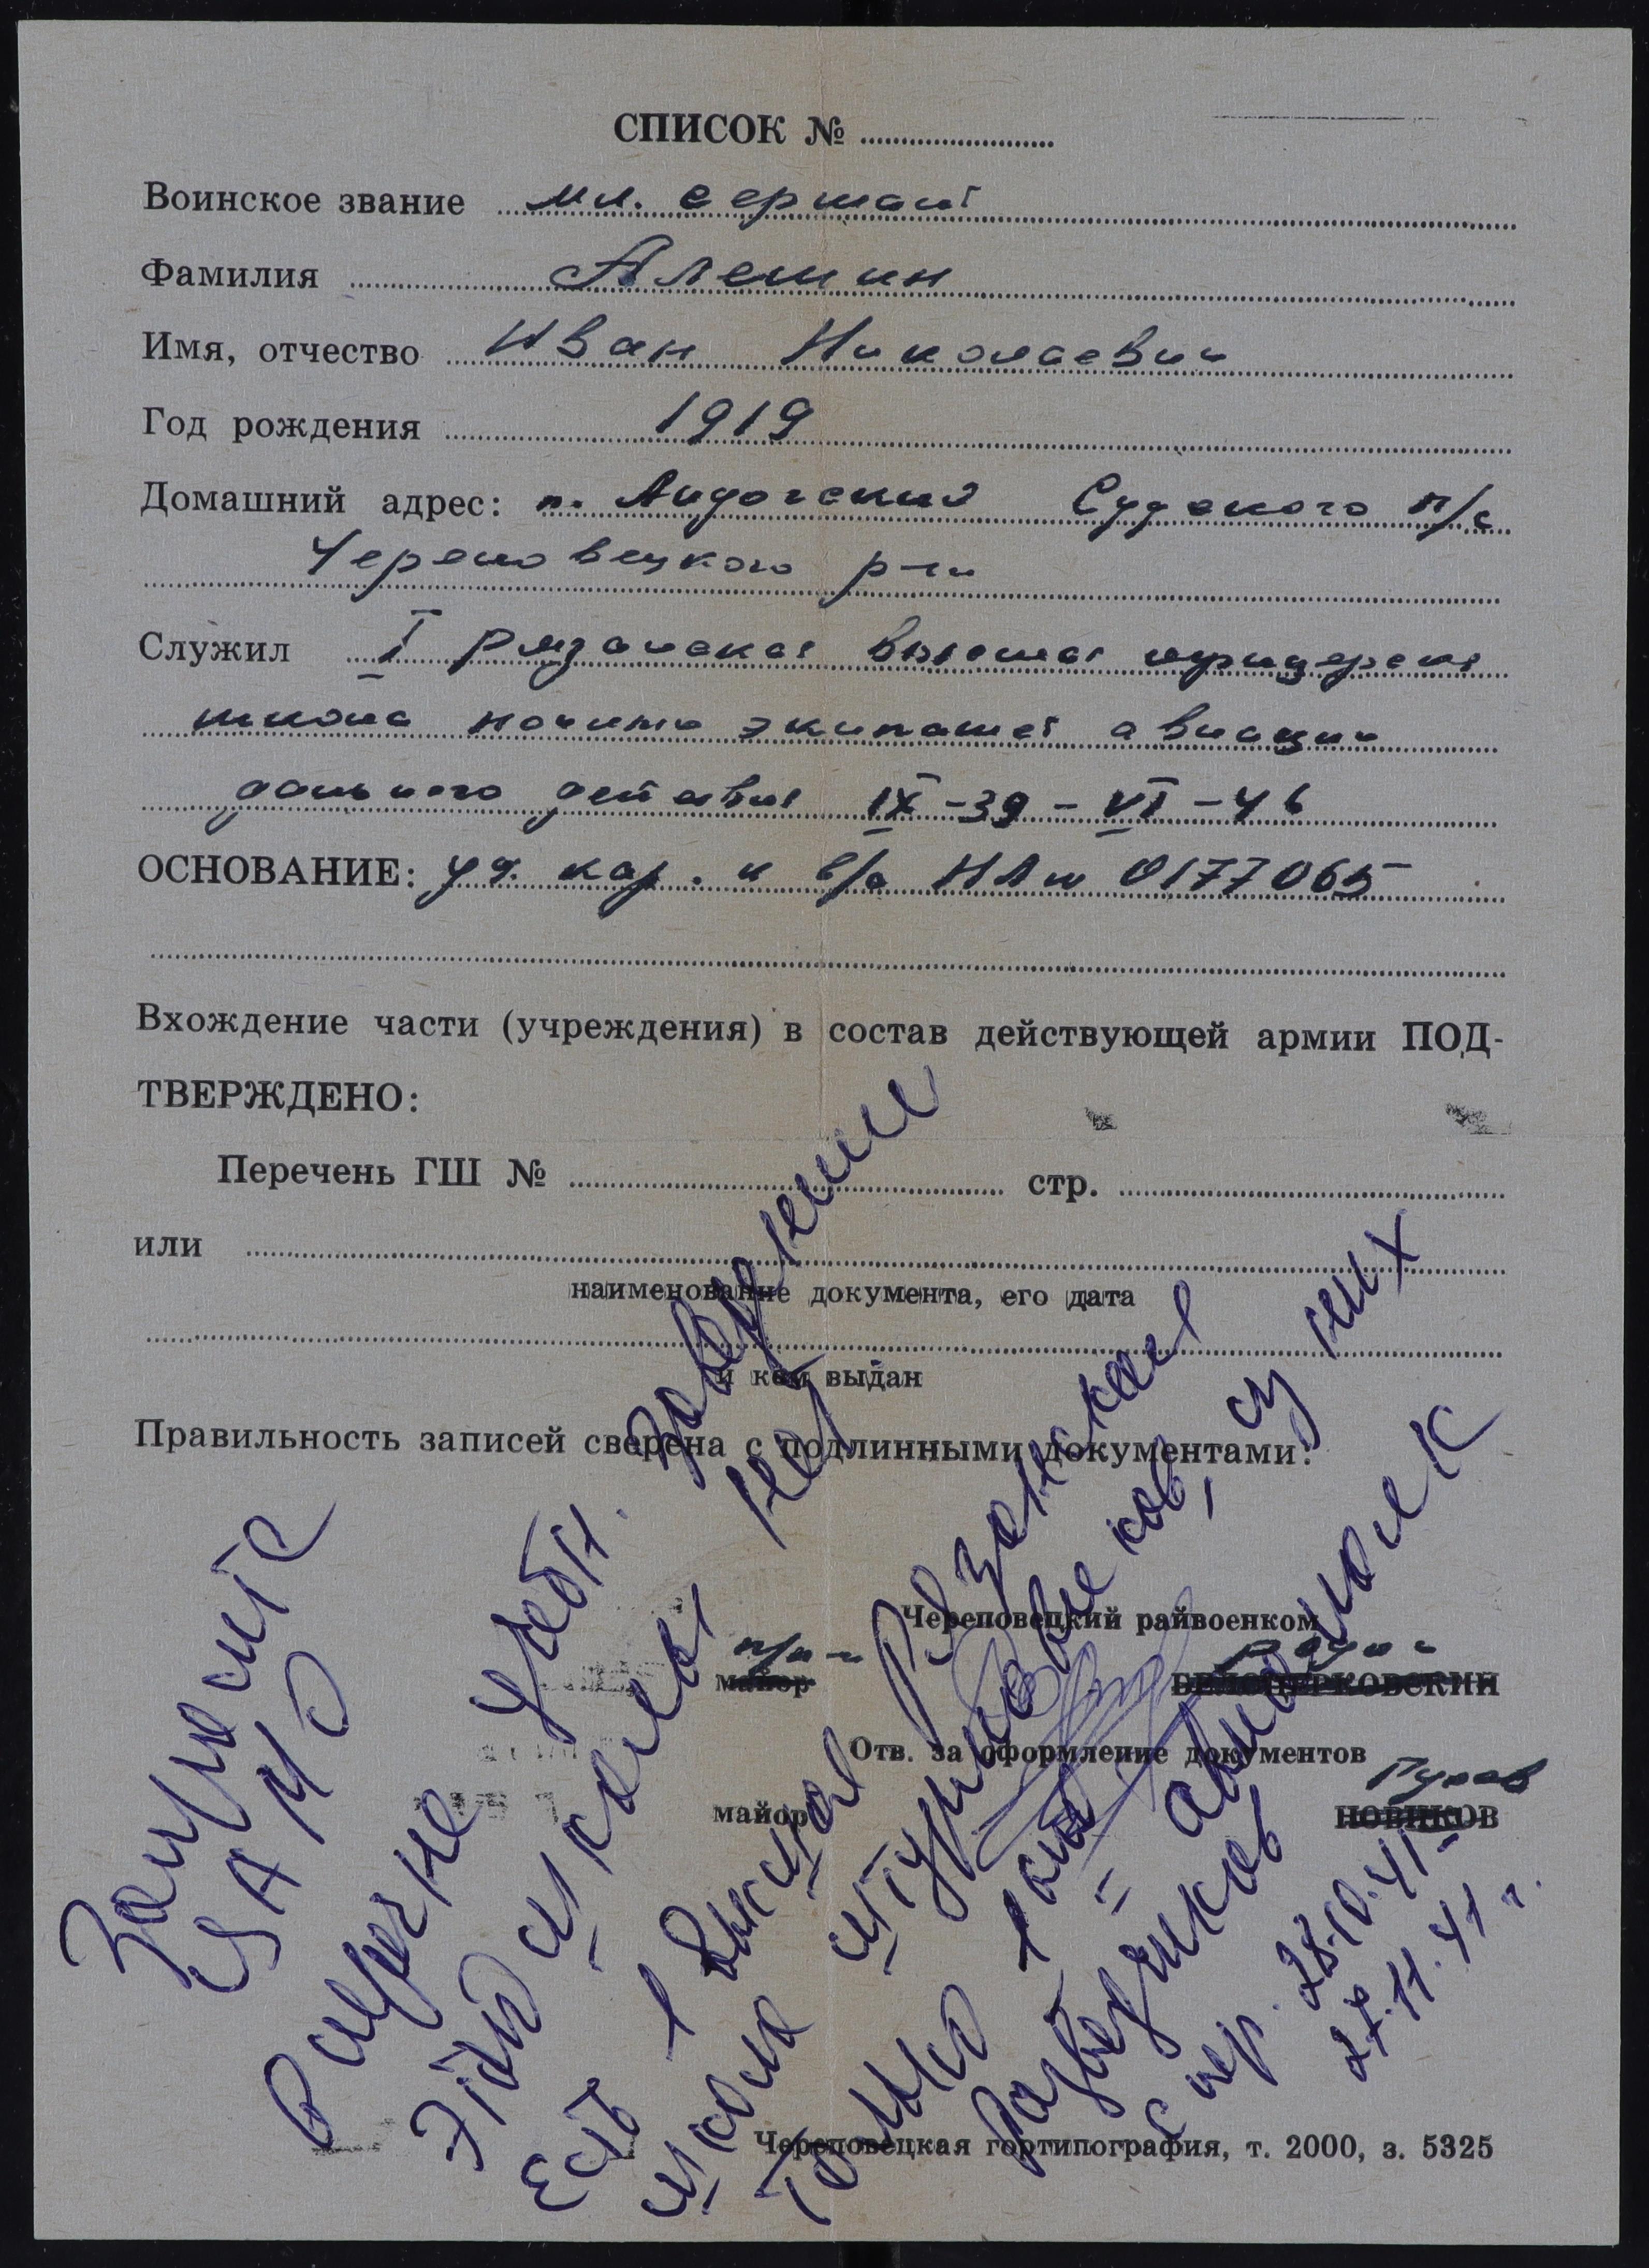 СПИСОК № ........................
Воинское звание мл. сержант
Фамилия Алешин
Имя, отчество Иван Николаевич
Год рождения 1919
Домашний адрес: п. Андогский Судского п/с
Череповецкого р-на
Служил I Рязанская высшая офицерская
школа ночных экипажей авиации
дальнего действия IX-39 - VI-46
ОСНОВАНИЕ: уч. кар. и в/б НЛ № 0177065
Вхождение части (учреждения) в состав действующей армии ПОД-
ТВЕРЖДЕНО:
Перечень ГШ № ........................ стр. ........................
или
наименование документа, его дата
и кем выдан
Правильность записей сверена с подлинными документами:
Череповецкий райвоенком
майор БЕЛОЦЕРКОВСКИЙ
Отв. за оформление документов
майор НОВИКОВ
Запросите
ЦАМО
В перечне учебн. заведений
этой школы нет
Есть 1 высшая Рязанская
школа штурманов, су них
только 1 авиаполк
разведчиков
с пер. 28.10.41 -
27.11.41 г.
Череповецкая гортипография, т. 2000, з. 5325